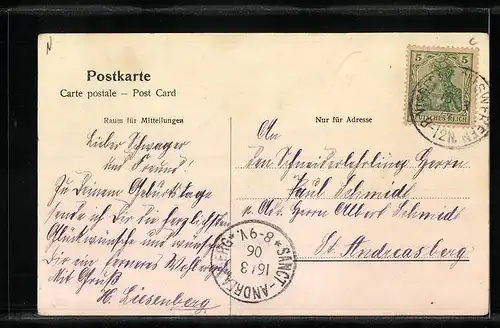 Postkarte
Carte postale – Post Card
Raum für Mitteilungen
Nur für Adresse
Lieber Schwager
und Freund!
Zu Deinem Geburtstage
sende ich Dir die herzlichsten
Glückwünsche und wünsche
Dir ein ferneres Wohlergehen
Mit Gruß
H. Liesenberg
An
den Schneiderlehrling Herrn
Paul Schmidt
Herrn Albert Schmidt
St. Andreasberg
5 5
DEUTSCHES REICH
8-12N.
SANCT-ANDREASBERG
8-9N.
16/3
06